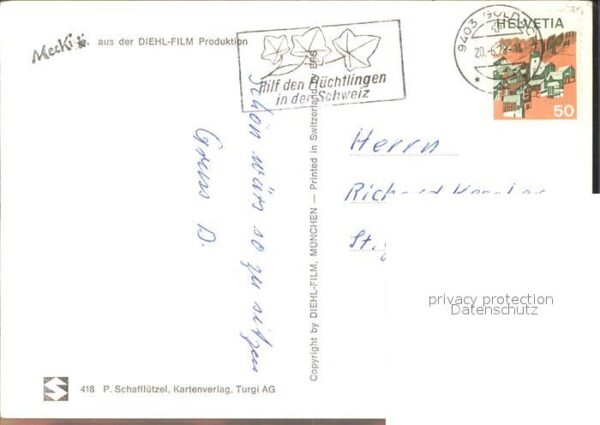 Mecki aus der DIEHL-FILM Produktion
Hilf den Flüchtlingen
in der Schweiz
9403 GOLDACH
20.-6.
HELVETIA
50
Schön wärs so zu sitzen
Gruss D.
Copyright by DIEHL-FILM, MÜNCHEN — Printed in Switzerland by
Herrn
Richard
St.
privacy protection
Datenschutz
418 P. Schafflützel, Kartenverlag, Turgi AG